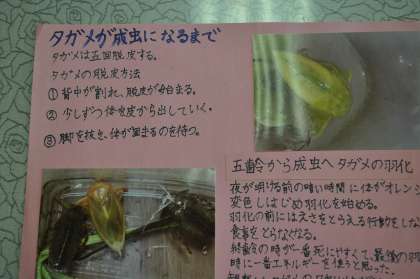 タガメが成虫になるまで
タガメは五回脱皮する。
タガメの脱皮方法
① 背中が割れ、脱皮が始まる。
② 少しずつ体を皮から出していく。
③ 脚を抜き、体が固まるのを待つ。
五齢から成虫へ タガメの羽化
夜が明ける前の暗い時間に体がオレン
変色しはじめ羽化を始める。
羽化の前にはえさをとらえる行動をしな
食事をとらなくなる。
終齢の時が一番死にやすくて、最後の羽
時に一番エネルギーを使うと思った。